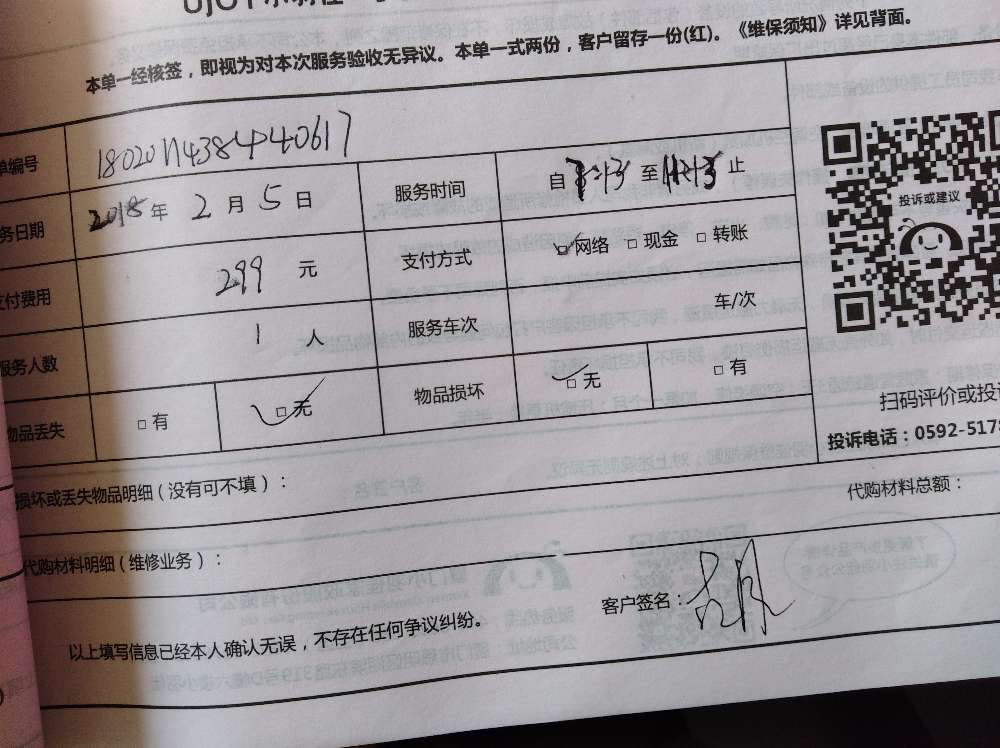 本单一经核签，即视为对本次服务验收无异议。本单一式两份，客户留存一份(红)。《维保须知》详见背面。
单编号 18020114384440617
务日期 2018年2月5日 服务时间 自 至 止
支付费用 299元 支付方式 □网络 □现金 □转账
服务人数 1人 服务车次 车/次
物品丢失 □有 □无 物品损坏 □无 □有
投诉或建议
扫码评价或投
投诉电话：0592-5178
损坏或丢失物品明细（没有可不填）：
代购材料总额：
代购材料明细（维修业务）：
客户签名：
以上填写信息已经本人确认无误，不存在任何争议纠纷。